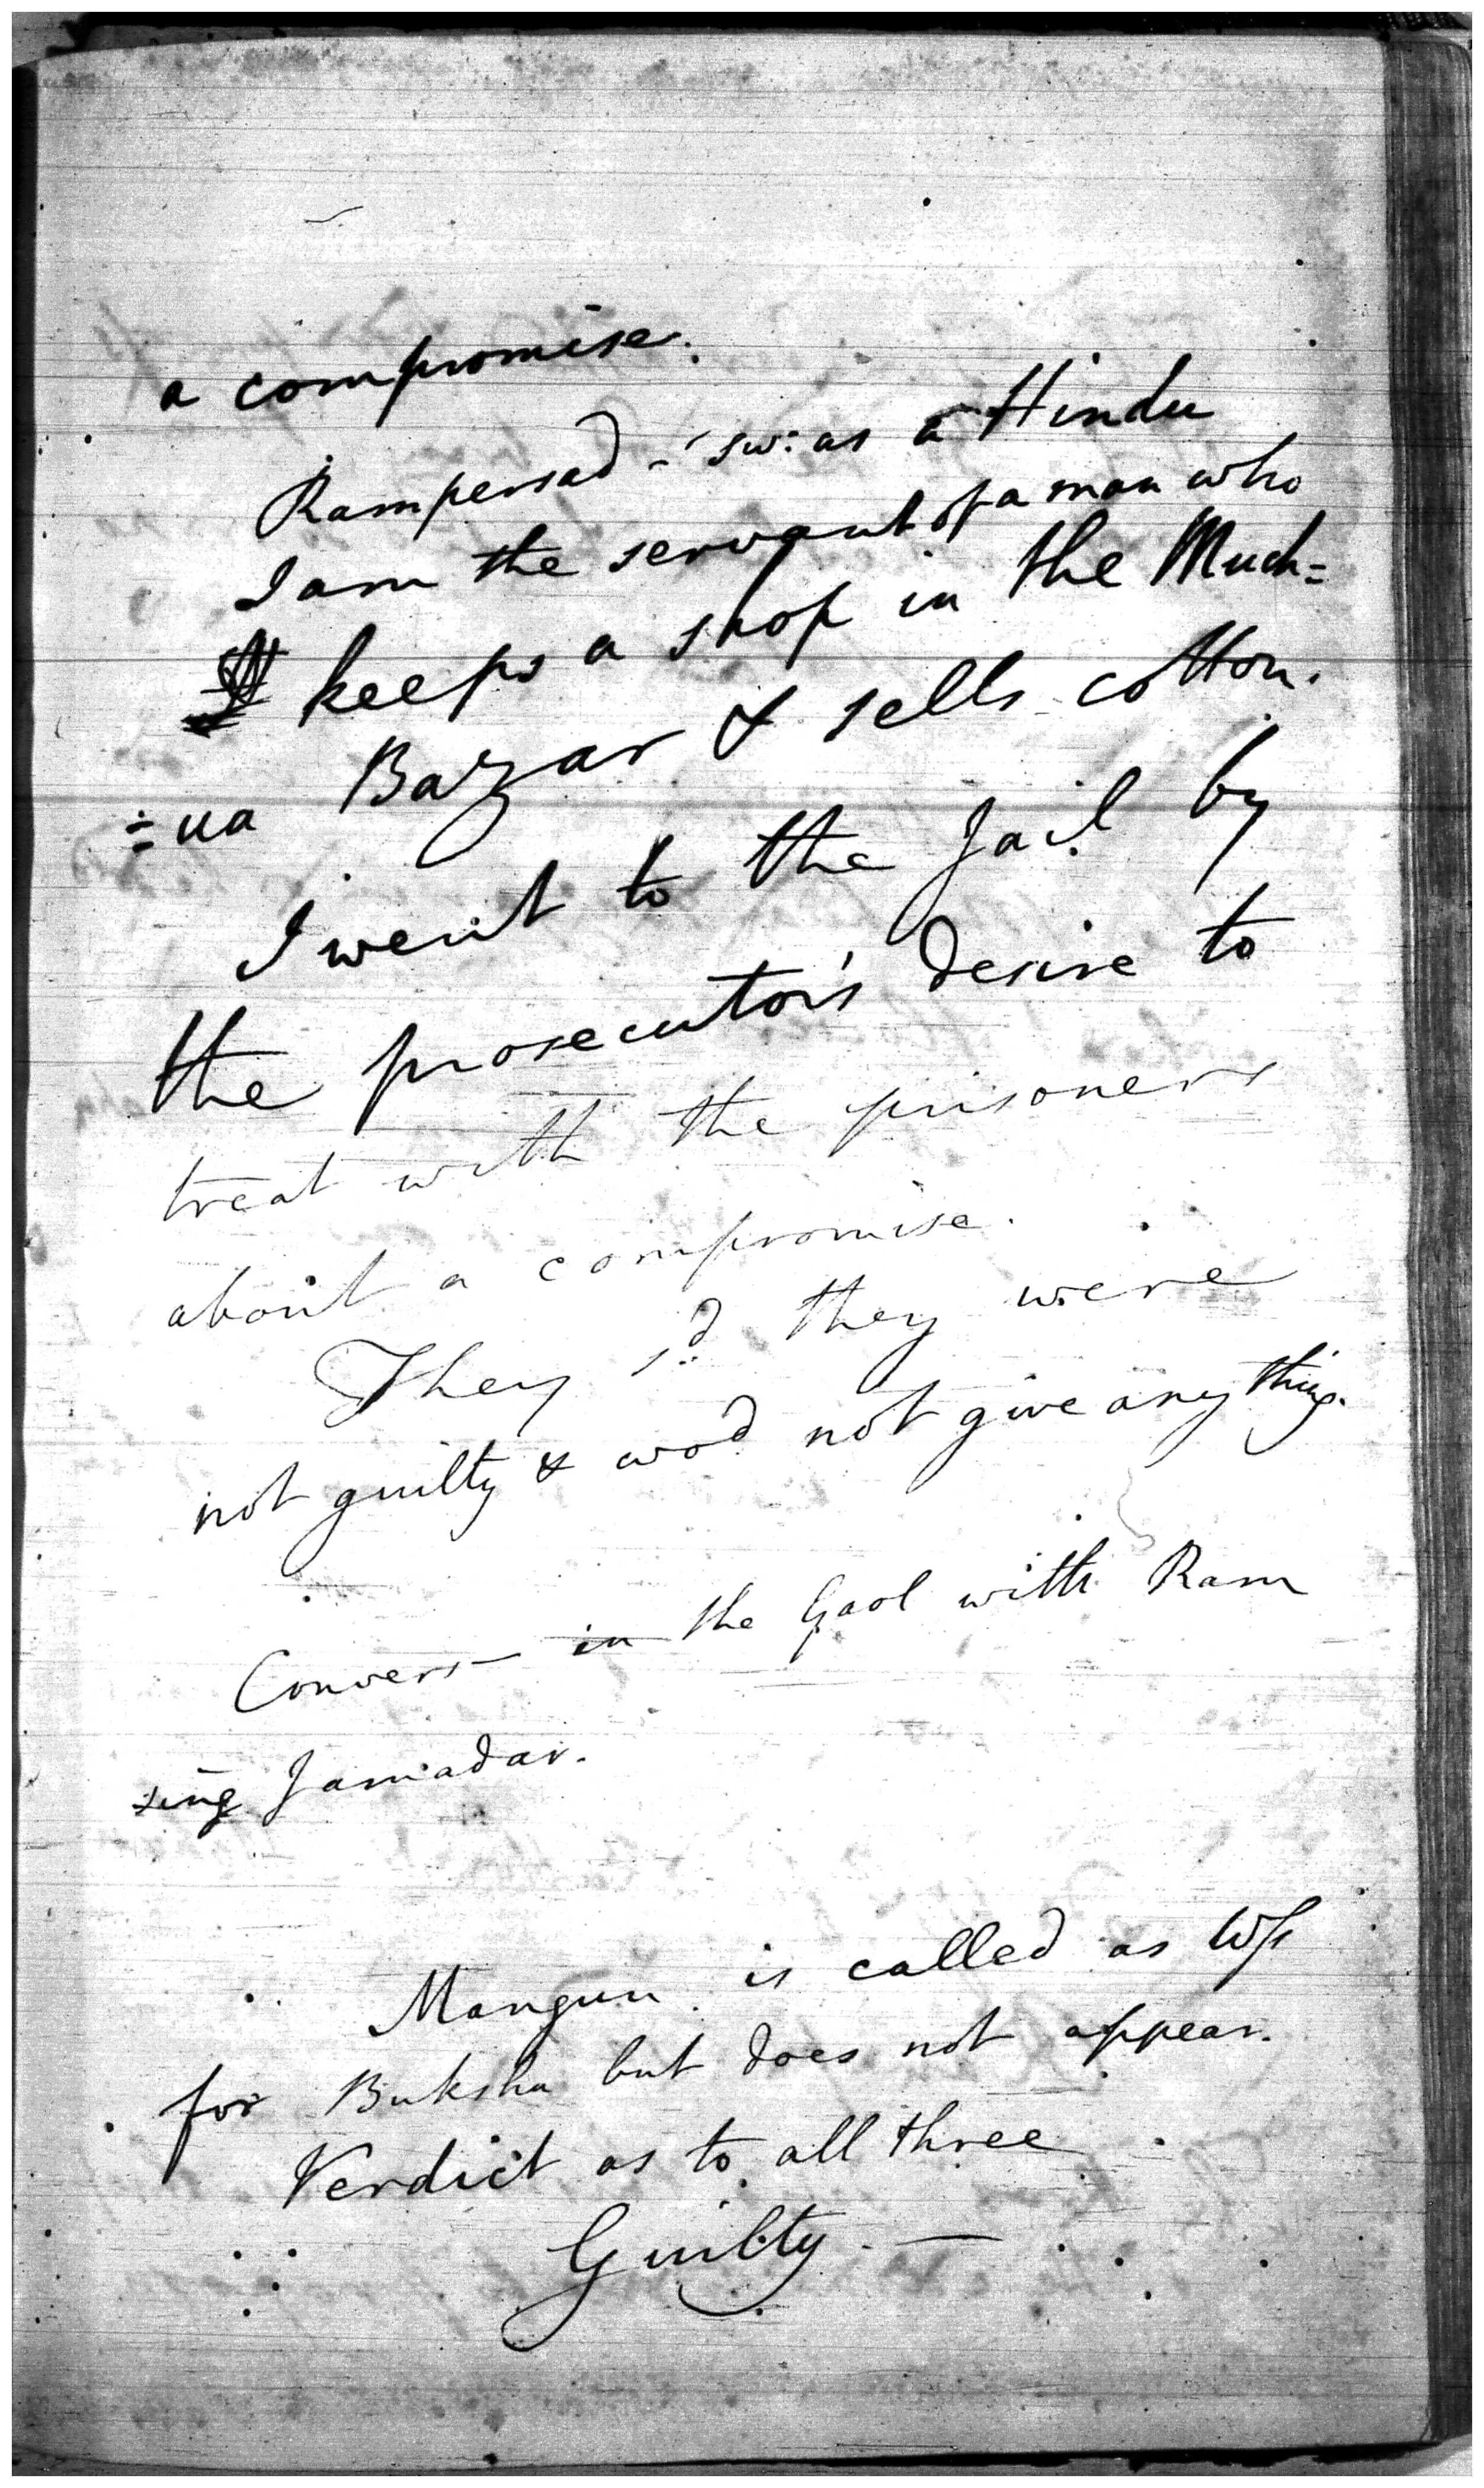 a compromise.
Rampersad - sw: as a Hindu
I am the servant of a man who
keeps a shop in the Much=
=ua Bazar & sells cotton.
I went to the Jail by
the prosecutor's desire to
treat with the prisoners
about a compromise.
They sd they were
not guilty & wod not give any thing.
Convers— in the Gaol with Ram
sing Jamadar.
Mangun is called as Ws
for Buksha but does not appear.
Verdict as to all three
Guilty. —